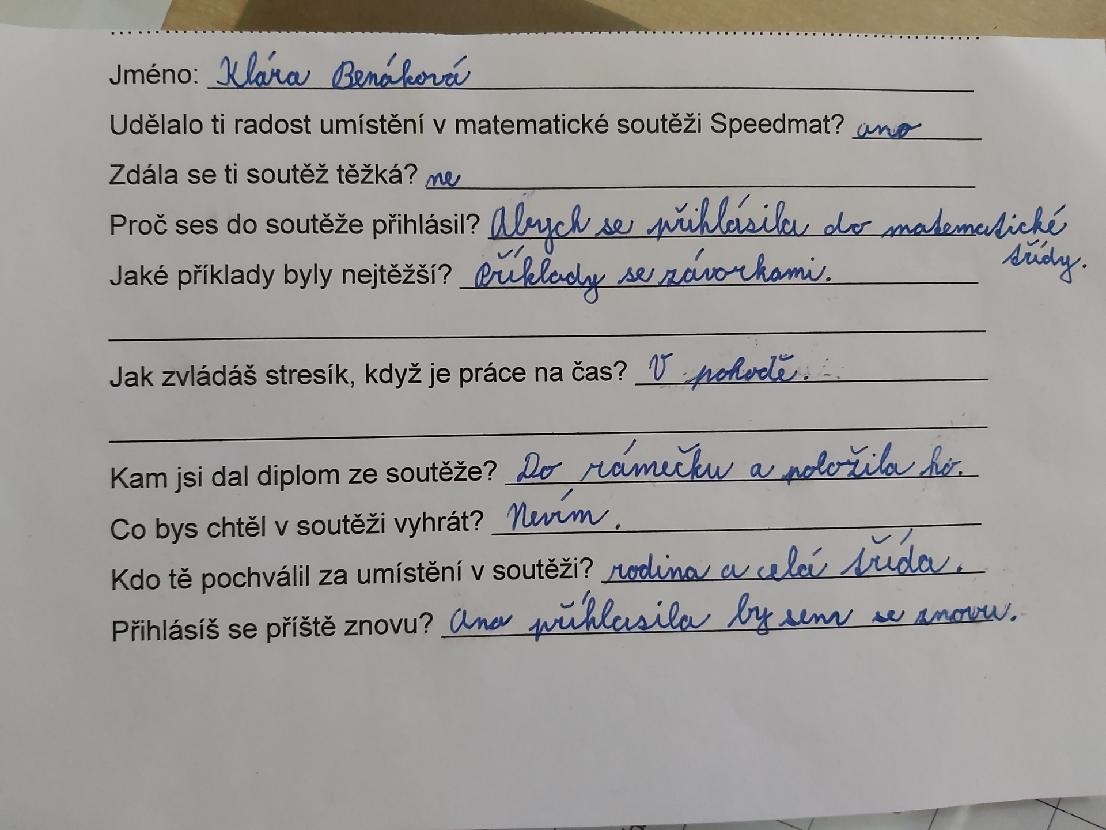 Jméno: Klára Benáková
Udělalo ti radost umístění v matematické soutěži Speedmat? ano
Zdála se ti soutěž těžká? ne
Proč ses do soutěže přihlásil? Abych se přihlásila do matematické
třídy.
Jaké příklady byly nejtěžší? Příklady se závorkami.
Jak zvládáš stresík, když je práce na čas? V pohodě.
Kam jsi dal diplom ze soutěže? Do rámečku a položila ho.
Co bys chtěl v soutěži vyhrát? Nevím.
Kdo tě pochválil za umístění v soutěži? rodina a celá třída.
Přihlásíš se příště znovu? Ano příhlasila by sem se znovu.